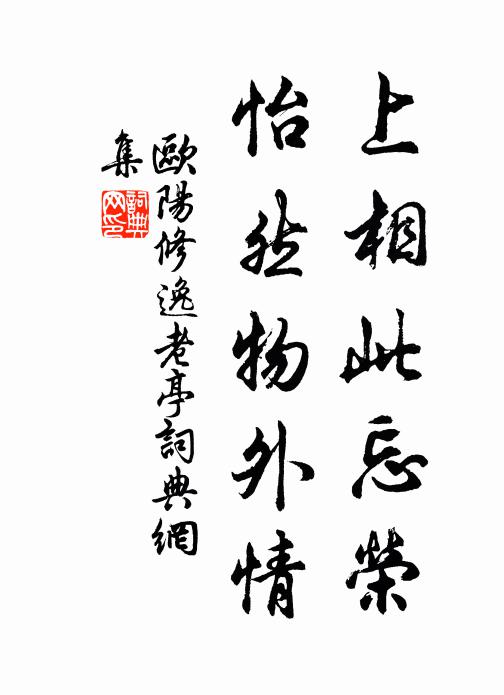 上相此忘榮
怡然物外情
歐陽修逸老亭詞典網
集
詞典网印